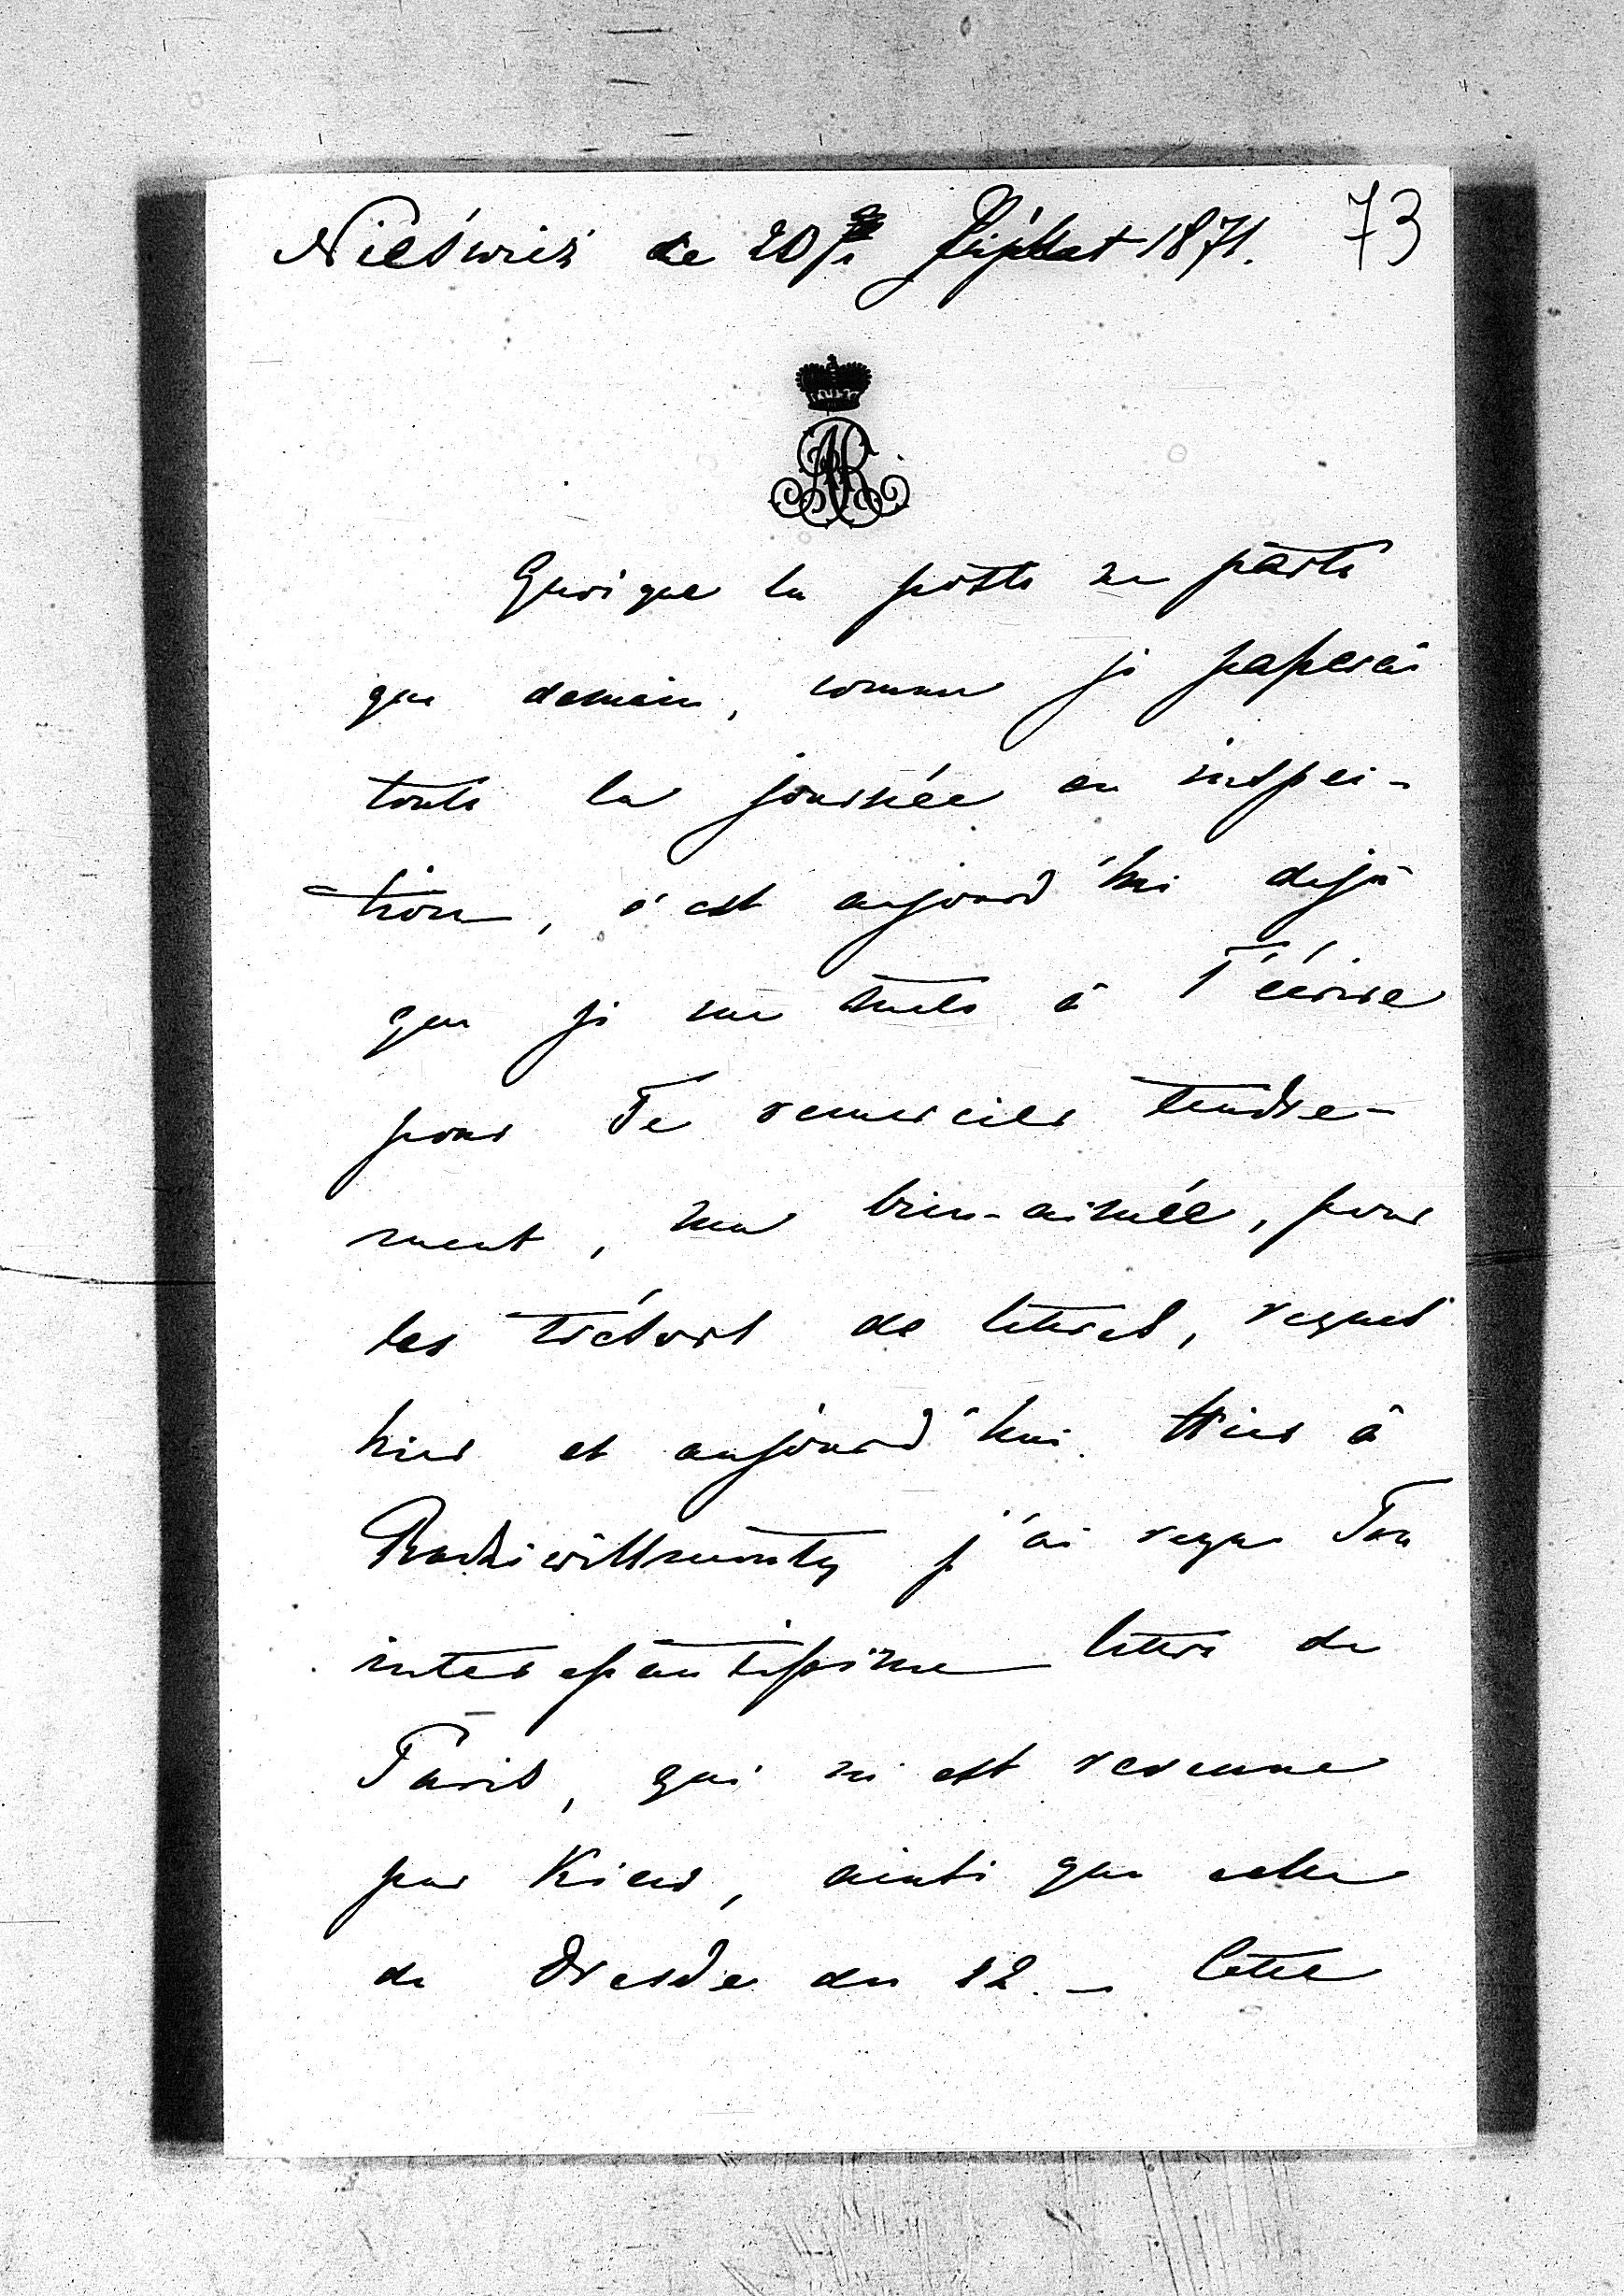 Nieśwież de 20/ 1871. 73
AR
Quoique la poste ne parte
que demain, comme je passerai
toute la journée en inspec-
tion, c'est aujourd'hui dejà
que je me mets à T'écrire
pour Te remercier tendre-
ment, ma bien-aimée, pour
les trésors de lettres, reçues
hier et aujourd'hui. Hier à
Radziwillmonty j'ai reçu Ta
interessantissime lettre de
Paris, qui m'est revenue
par Kiew, ainsi que celle
de Dresde du 12. – Cette